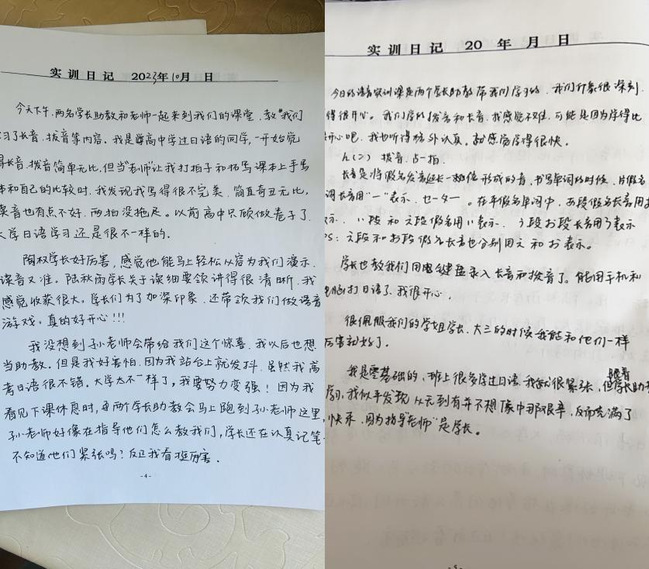 实训日记 2023年10月 日
今天下午,两名学长助教和老师一起来到我们的课堂,教我们
习了长音、拨音等内容。我是尊高中学过日语的同学,一开始觉
得长音、拨音简单无比,但当“老师”让我打拍子和拓写课本上手写
体和自己的比较时,我发现我写得很不完美,简直奇丑无比,
读音也有点不好,两拍没拖足。以前高中只顾做卷子了,
大学日语学习还是很不一样的。
陶权学长好厉害,感觉他能马上轻松从容为我们演示,
读音又准。陆秋雨学长关于读细要领讲得很清晰,我
感觉收获很大。学长们为了加深印象,还带领我们做语音
游戏,真的好开心!!!
我没想到孙老师会带给我们这个惊喜,我以后也想
当助教。但是我好害怕,因为我站台上就发抖,虽然我高
考日语很不错,大学太不一样了,我要努力变强!因为我
看见下课休息时,两个学长助教会马上跑到孙老师这里
孙老师好像在指导他们怎么教我们,学长还在认真记笔
不知道他们紧张吗?反正我看挺厉害。
-4-
实训日记 20 年 月 日
今日的语音实训课是两个学长助教带我们学习的,我们印象很深刻
得很开心。我们学的拨音和长音,我感觉不难,可能是因为学得比
开心吧,我也听得格外认真,就感觉学得很快。
ん(二)拨音,占一拍。
长音是将假名发音延长一拍后形成的音,书写单词的时候,片假名
调长音用“一”表示,セーター。在平假名单词中,あ段假名长音用あ
示,い段和え段假名用い表示,う段お段长音用う表示
PS:え段和お段假名长音也分别用え和お表示。
学长也教我们用电脑键盘录入长音和拨音了。能用手机和
电脑打日语了,我很开心。
很佩服我们的学姐学长,大三的时候我能和他们一样
厉害就好了。
我是零基础的,班上很多学过日语,我就很紧张,但学长助
学习,我似乎发现从无到有并不想像中那艰辛,反而充满了
快乐,因为指导“老师”是学长。